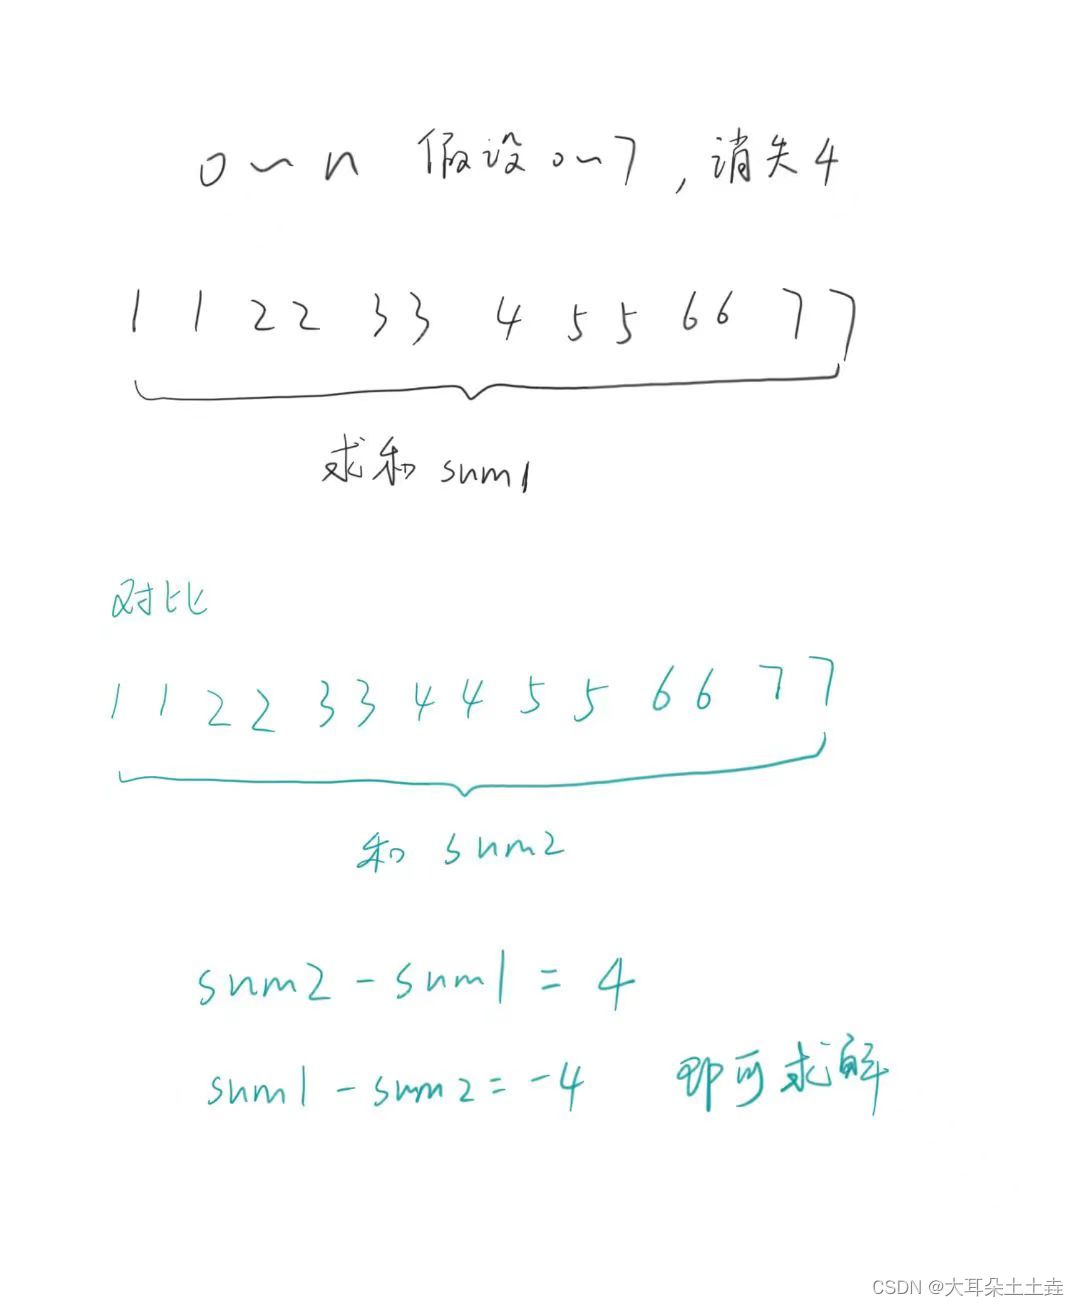 0~n 假设0~7，消失4
1 1 2 2 3 3 4 5 5 6 6 7 7
求和 sum1
对比
1 1 2 2 3 3 4 4 5 5 6 6 7 7
和 sum2
sum2 - sum1 = 4
sum1 - sum2 = -4 即可求解
CSDN @大耳朵土土垚